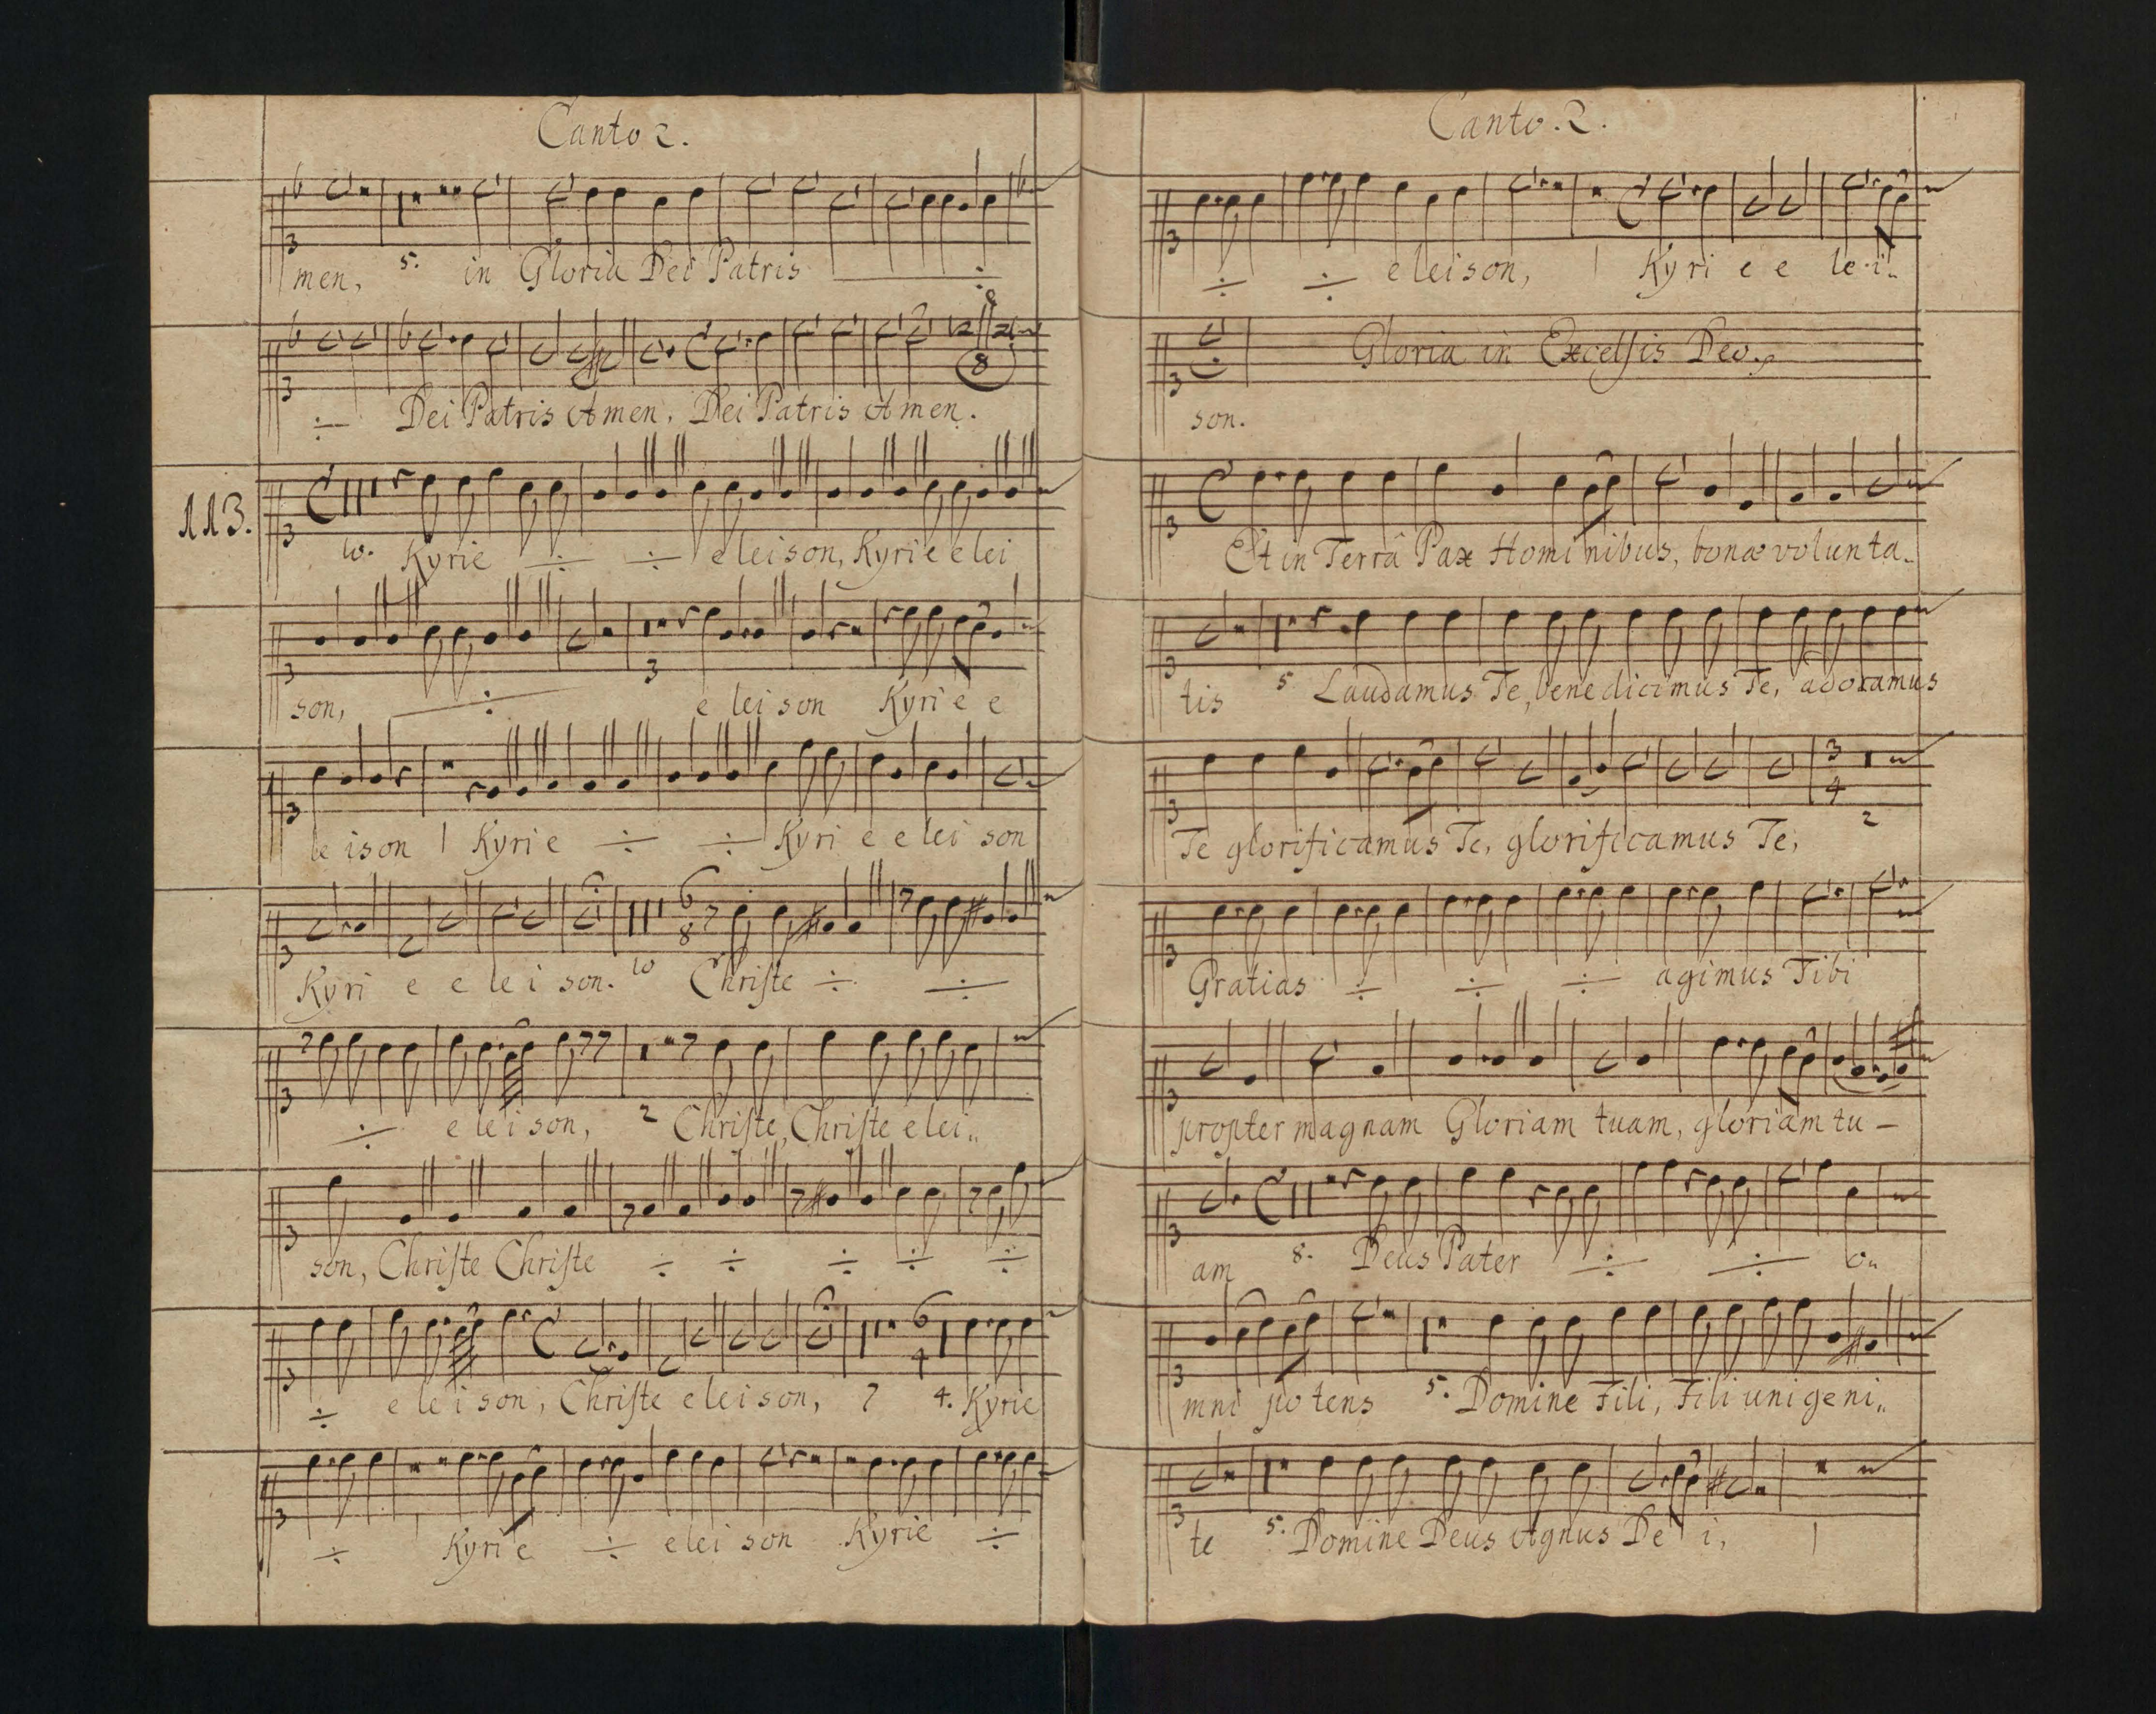 Canto 2.
men, 5. in Gloria Dei Patris ÷
÷ Dei Patris Amen, Dei Patris Amen.
113.
10. Kyrie ÷ ÷ eleison, Kyrie elei
son, ÷ 3 eleison Kyrie e
leison | Kyrie ÷ ÷ Kyri e elei son
Kyri e e le i son. 10 Christe ÷ ÷
÷ e le i son, 2 Christe, Christe elei„
son, Christe Christe ÷ ÷ ÷ ÷ ÷
÷ e le i son, Christe eleison, 7 4. Kyrie
÷ Kyri e ÷ elei son Kyrie ÷
Canto. 2.
÷ ÷ eleison, | Kyri e e le i„
Gloria in Excelsis Deo.
son.
Et in Terrâ Pax Hominibus, bonæ volunta„
tis 5 Laudamus Te, benedicimus Te, adoramus
Te glorificamus Te, glorificamus Te, 2
Gratias ÷ ÷ ÷ agimus Tibi
propter magnam Gloriam tuam, gloriam tu –
am 8. Deus Pater ÷ ÷ o„
mni potens 5. Domine Fili, Fili unigeni„
te 5. Domine Deus Agnus De i, |